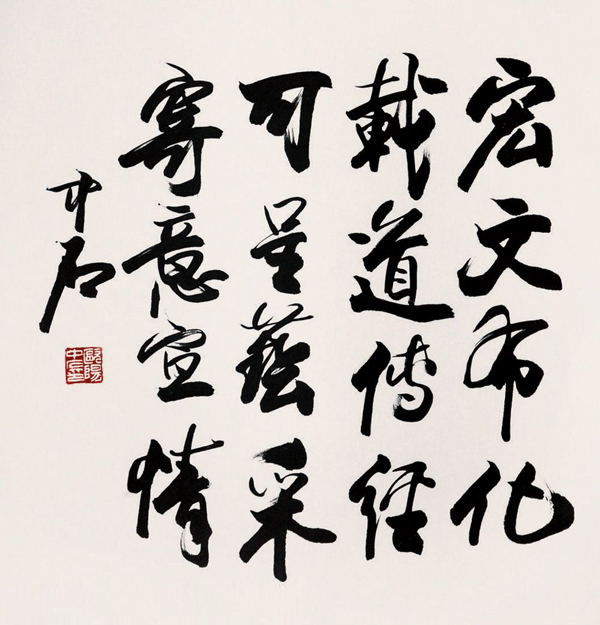 宏文布化
載道傳經
可呈藝采
寄意宣情
中石
歐陽